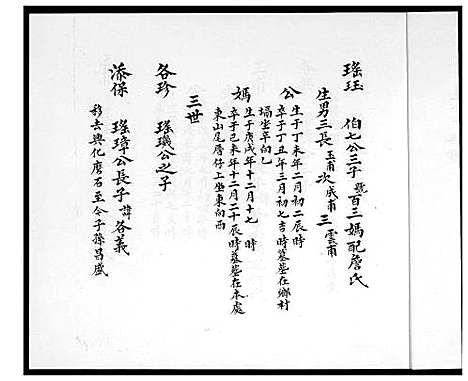 瑤玨 伯七公三子號百三媽配詹氏
生男三長玉甫次成甫三雲甫
公生于丁未年二月初二辰時
卒于丁丑年三月初七吉時墓葬在鄉村
塥坐辛向乙
媽生于庚戌年十二月十七 時
卒于己未年十二月二十辰時墓葬在本處
東山尾厝仔上坐東向西
三世
各珍 瑤璣公之子
添保 瑤璋公長子諱各義
移去興化磨石至今子孫昌盛